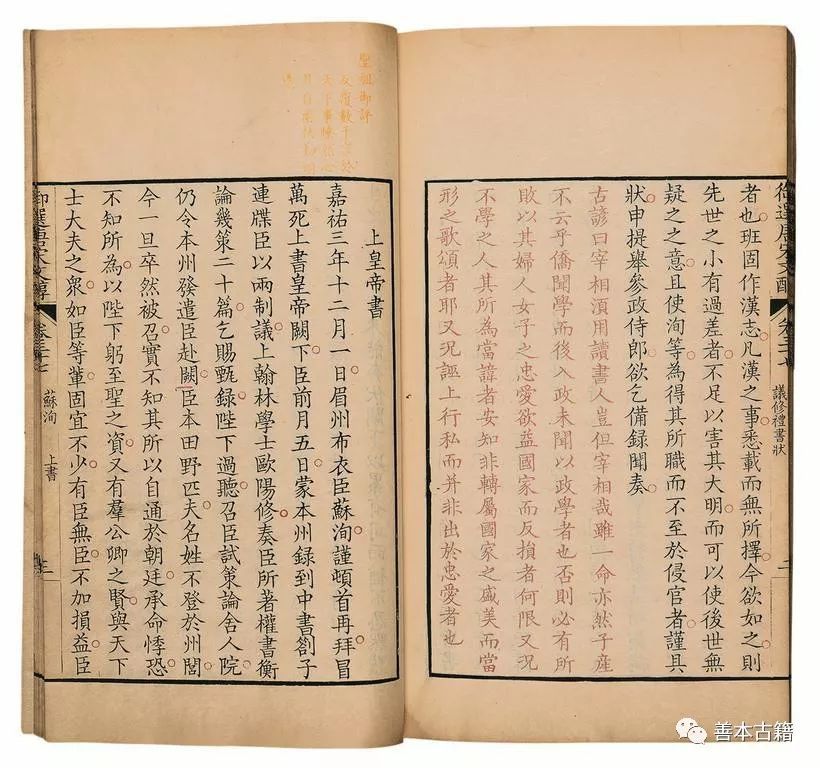 者也班固作漢志凡漢之事悉載而無所擇今欲如之則
先世之小有過差者不足以害其大明而可以使後世無
疑之之意且使洵等為得其所職而不至於侵官者謹具
狀申提舉參政侍郎欲乞備録聞奏
古諺曰宰相須用讀書人豈但宰相哉雖一命亦然子產
不云乎僑聞學而後入政未聞以政學者也否則必有所
敗以其婦人女子之忠愛欲益國家而反損者何限又況
不學之人其所為當諱者安知非轉屬國家之盛美而當
形之歌頌者耶又況誣上行私而并非出於忠愛者也
議修禮書狀
二
聖祖御評
反復數千言於
天下事
上皇帝書
嘉祐三年十二月一日眉州布衣臣蘇洵謹頓首再拜冒
萬死上書皇帝闕下臣前月五日蒙本州録到中書劄子
連牒臣以兩制議上翰林學士歐陽修奏臣所著權書衡
論幾策二十篇乞賜甄録陛下過聽召臣試策論舍人院
仍令本州發遣臣赴闕臣本田野匹夫名姓不登於州閭
今一旦卒然被召實不知其所以自通於朝廷承命悸恐
不知所為以陛下躬至聖之資又有羣公卿之賢與天下
士大夫之衆如臣等輩固宜不少有臣無臣不加損益臣
御選唐宋文醇
卷三十七
蘇洵
上書
善本古籍